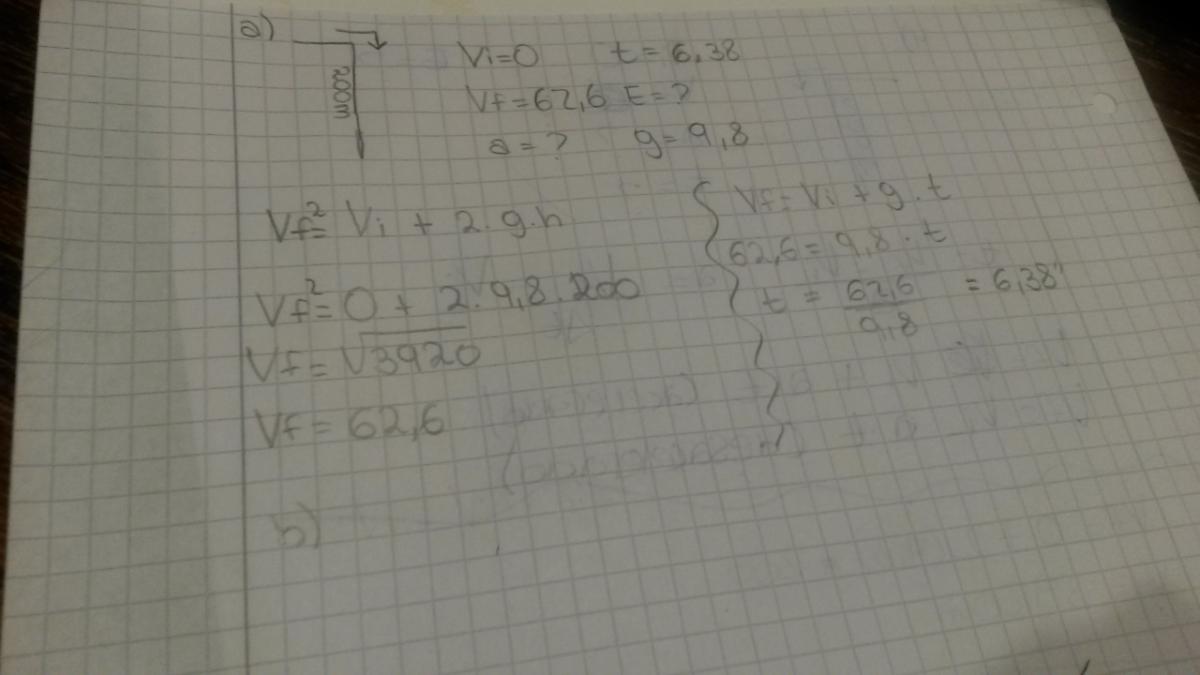 a)
200m
Vi=0 t=6,38
Vf=62,6 t=?
a=? g=9,8
Vf²= Vi + 2.g.h
Vf²= 0 + 2.9,8.200
Vf= √3920
Vf= 62,6
Vf= Vi + g.t
62,6= 9,8.t
t = 62,6/9,8 = 6,38
b)